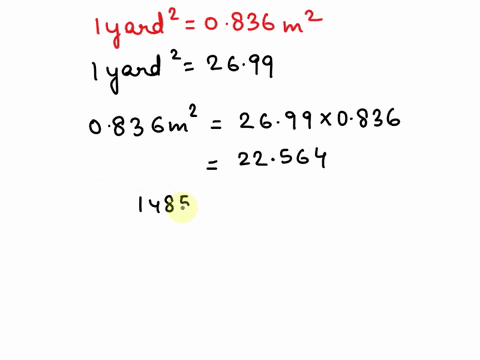 1 yard² = 0.836 m²
1 yard² = 26.99
0.836m² = 26.99 × 0.836
= 22.564
1485